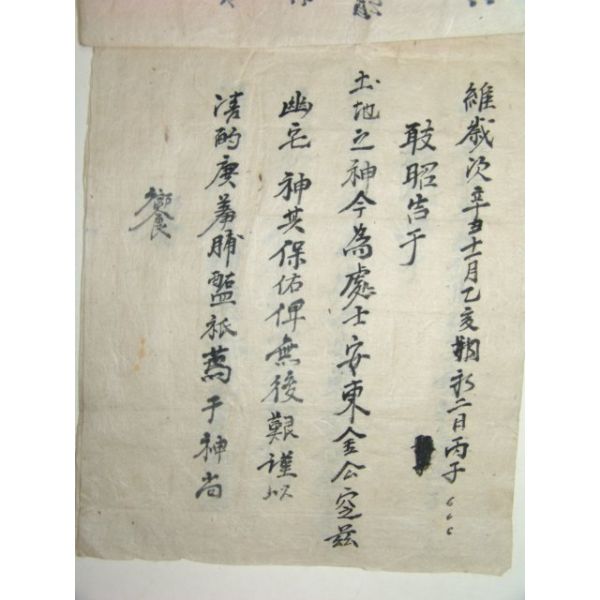 維歲次辛丑十二月乙亥朔初二日丙子
敢昭告于
土地之神今為處士安東金公窆玆
幽宅神其保佑俾無後艱謹以
清酌庚羞脯醢祗薦于神尚
饗